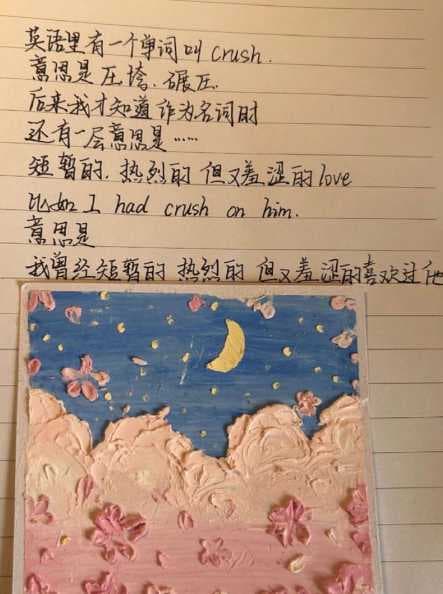 英语里有一个单词叫 crush.
意思是压垮. 碾压.
后来我才知道作为名词时
还有一层意思是……
短暂的. 热烈的 但又羞涩的love
比如 I had crush on him.
意思是
我曾经短暂的 热烈的 但又羞涩的喜欢过他